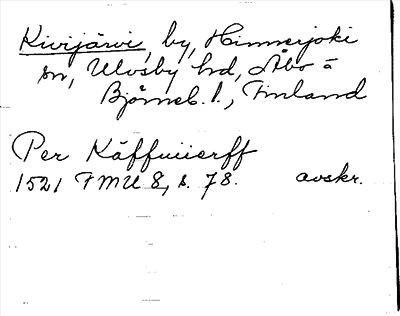 Kivijärvi, by, Hinnerjoki
sn, Ulvsby hd, Åbo å
Björneb. l., Finland
Per Käffuiierff
1521 FMU 8, s. 78. avskr.